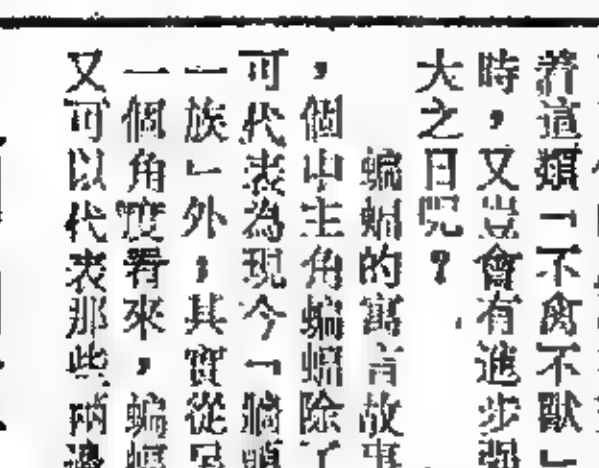 着這類「不禽不獸」
時，又豈會有進步強
大之日呢？
蝙蝠的寓言故事
，個中主角蝙蝠除了
可代表為現今「牆頭
一族」外，其實從另
一個角度看來，蝙蝠
又可以代表那些兩邊